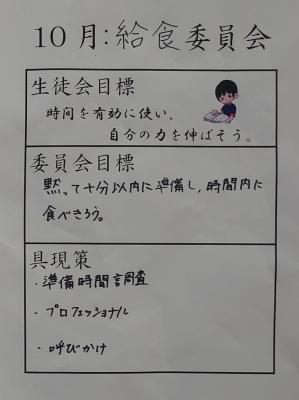 10月:給食委員会
生徒会目標
時間を有効に使い、
自分の力を伸ばそう。
委員会目標
黙って十分以内に準備し,時間内に
食べきろう。
具現策
・準備時間調査
・プロフェッショナル
・呼びかけ